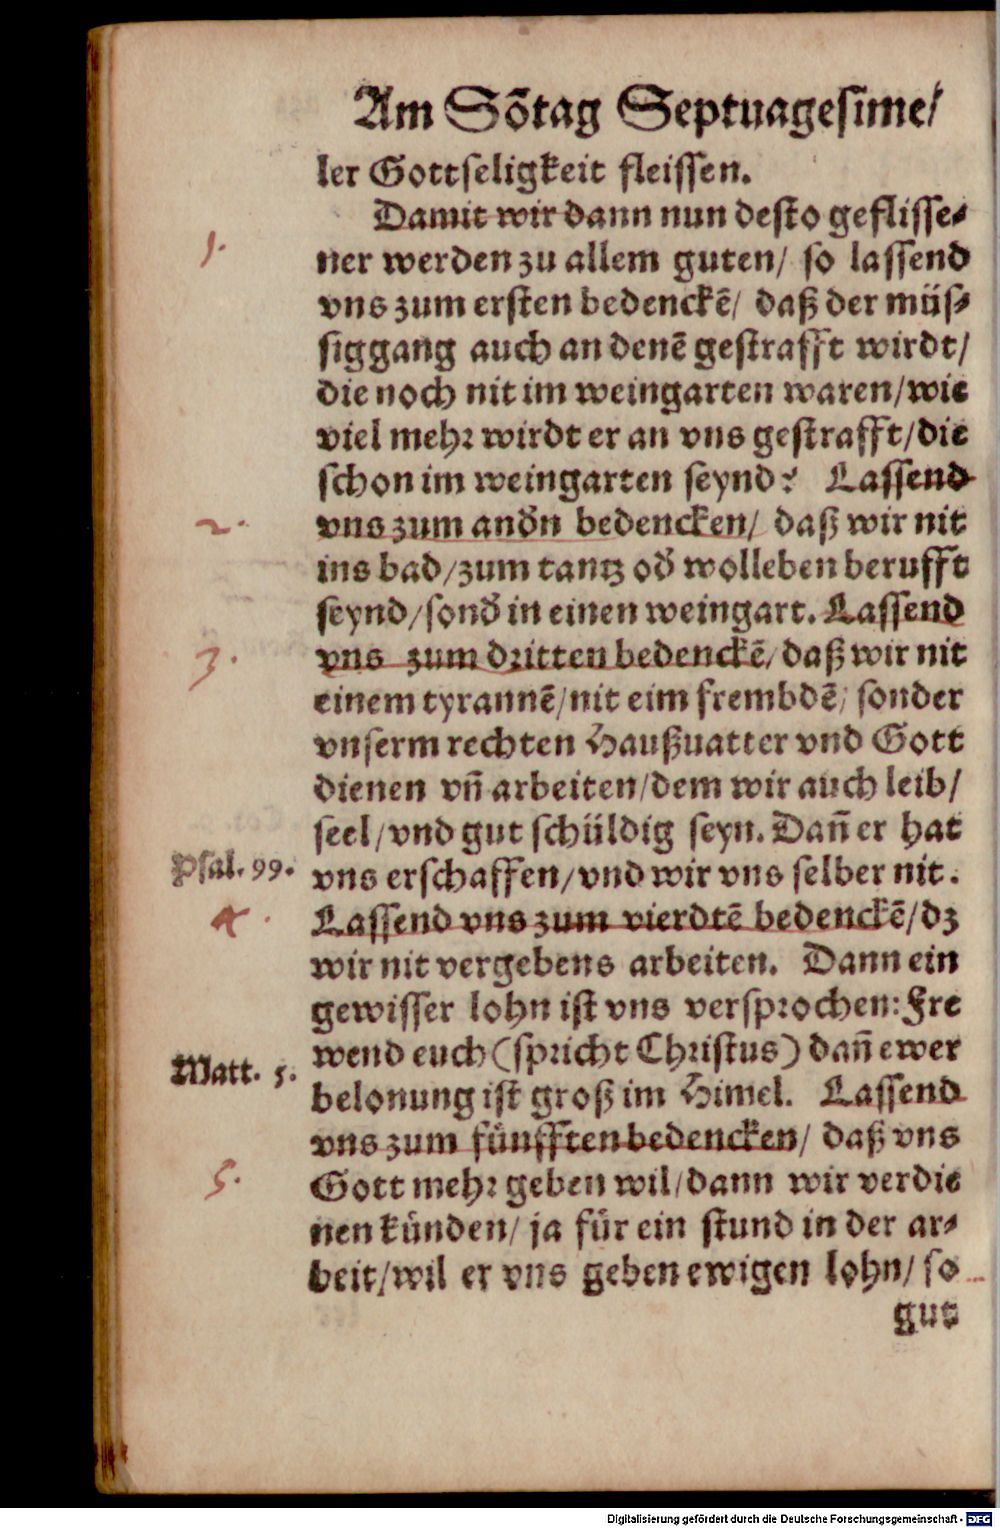 Am Sõtag Septuagesime/
ler Gottseligkeit fleissen.
Damit wir dann nun desto geflisse-
1.
ner werden zu allem guten/ so lassend
vns zum ersten bedenckẽ/ daß der müs-
siggang auch an denẽ gestrafft wirdt/
die noch nit im weingarten waren/wie
viel mehr wirdt er an vns gestrafft/die
schon im weingarten seynd? Lassend
2.
vns zum andn̄ bedencken/ daß wir nit
ins bad/zum tantz od̄ wolleben berufft
seynd/sond̄ in einen weingart. Lassend
3.
vns zum dritten bedenckẽ/daß wir nit
einem tyrannẽ/nit eim frembdẽ/ sonder
vnserm rechten Haußuatter vnd Gott
dienen vñ arbeiten/dem wir auch leib/
seel/vnd gut schüldig seyn. Dañ er hat
Psal. 99.
vns erschaffen/vnd wir vns selber nit.
4.
Lassend vns zum vierdtẽ bedenckẽ/dz
wir nit vergebens arbeiten. Dann ein
gewisser lohn ist vns versprochen: Fre
Matt. 5.
wend euch (spricht Christus) dañ ewer
belonung ist groß im Himel. Lassend
vns zum fünfften bedencken/ daß vns
5.
Gott mehr geben wil/dann wir verdie
nen künden/ ja für ein stund in der ar-
beit/wil er vns geben ewigen lohn/ so
gut
Digitalisierung gefördert durch die Deutsche Forschungsgemeinschaft - DFG